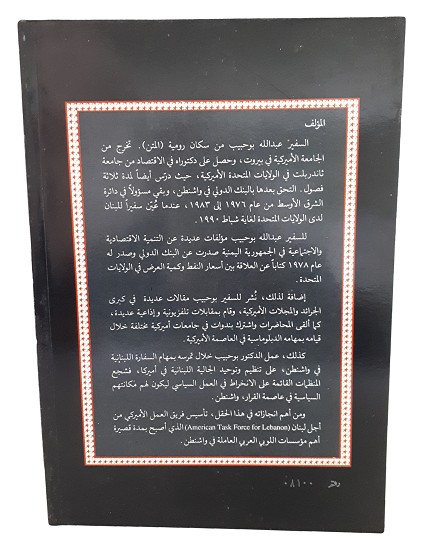 المؤلف
السفير عبدالله بوحبيب من سكان رومية (المتن). تخرج من
الجامعة الأميركية في بيروت، وحصل على دكتوراه في الاقتصاد من جامعة
ڤاندربلت في الولايات المتحدة الأميركية، حيث درّس أيضاً لمدة ثلاثة
فصول. التحق بعدها بالبنك الدولي في واشنطن، وبقي مسؤولاً في دائرة
الشرق الأوسط من عام ١٩٧٦ إلى ١٩٨٣، عندما عُيّن سفيراً للبنان
لدى الولايات المتحدة لغاية شباط ١٩٩٠.
للسفير عبدالله بوحبيب مؤلفات عديدة عن التنمية الاقتصادية
والاجتماعية في الجمهورية اليمنية صدرت عن البنك الدولي وصدر له
عام ١٩٧٨ كتاباً عن العلاقة بين أسعار النفط وكمية العرض في الولايات
المتحدة.
إضافة لذلك، نُشر للسفير بوحبيب مقالات عديدة في كبرى
الجرائد والمجلات الأميركية، وقام بمقابلات تلفزيونية وإذاعية عديدة،
كما ألقى المحاضرات واشترك بندوات في جامعات أميركية مختلفة خلال
قيامه بمهامه الدبلوماسية في العاصمة الأميركية.
كذلك، عمل الدكتور بوحبيب خلال تمرسه بمهام السفارة اللبنانية
في واشنطن، على تنظيم وتوحيد الجالية اللبنانية في أميركا، فشجع
المنظمات القائمة على الانخراط في العمل السياسي ليكون لهم مكانتهم
السياسية في عاصمة القرار، واشنطن.
ومن أهم انجازاته في هذا الحقل، تأسيس فريق العمل الأميركي من
أجل لبنان (American Task Force for Lebanon) الذي أصبح بمدة قصيرة
أهم مؤسسات اللوبي العربي العاملة في واشنطن.
٠٨١٠٠